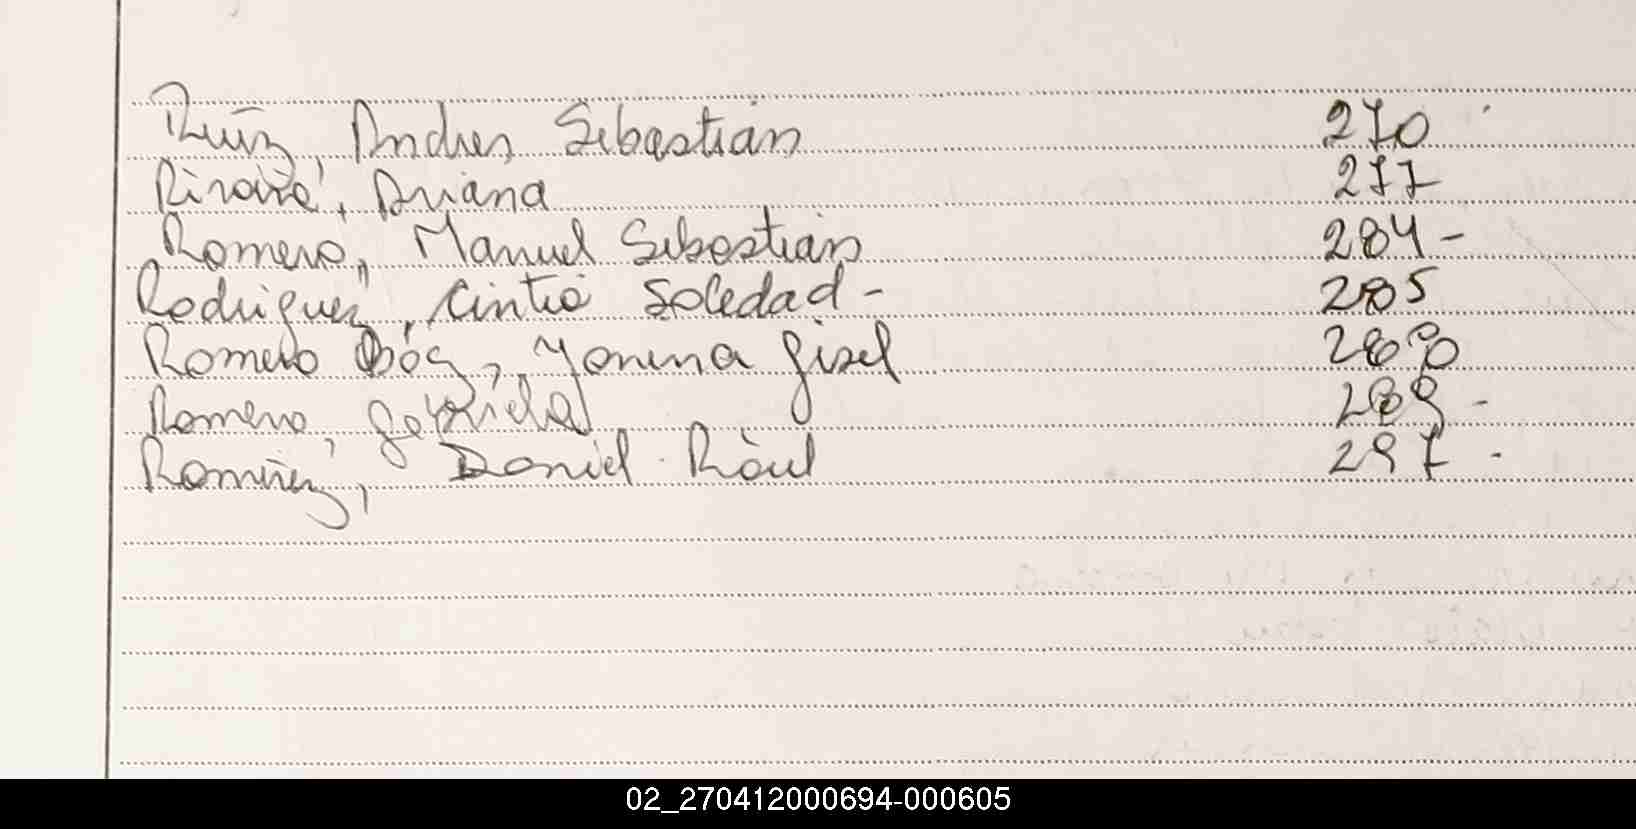 Ruiz, Andres Sebastian 270
Ariana 277
Romero, Manuel Sebastian 284 -
Rodriguez, Cintia Soledad - 285
Romero Yanina Gisel
Romero, Gabriela 289 -
Ramirez, Daniel Raul 297 -
02_270412000694-000605